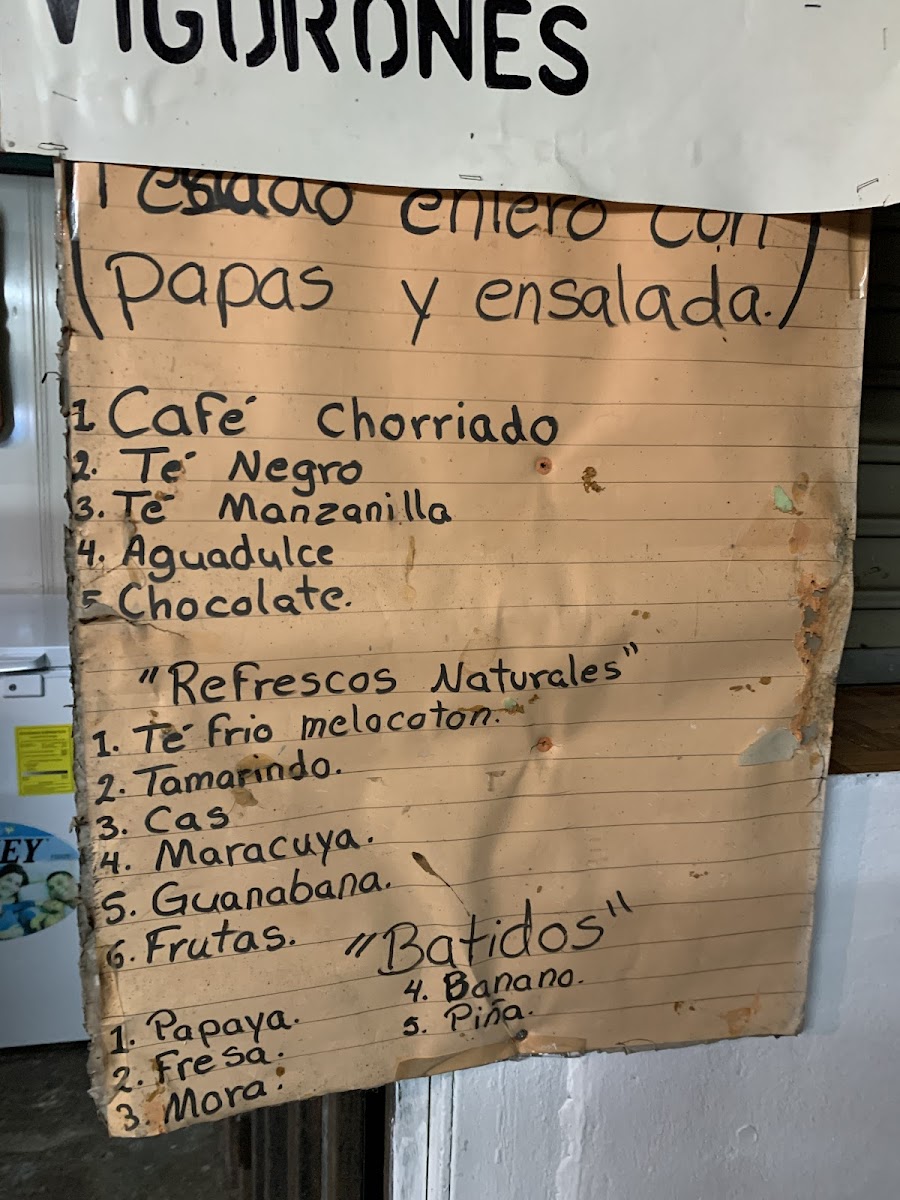 VIGORONES
Pescado entero con
(papas y ensalada.)
1 Café Chorriado
2. Té Negro
3. Té Manzanilla
4. Aguadulce
5 Chocolate.
"Refrescos Naturales"
1. Té frio melocoton.
2. Tamarindo.
3. Cas
4. Maracuya.
5. Guanabana.
6. Frutas.
"Batidos"
1. Papaya.
2. Fresa.
3. Mora.
4. Banano.
5. Piña.
EY